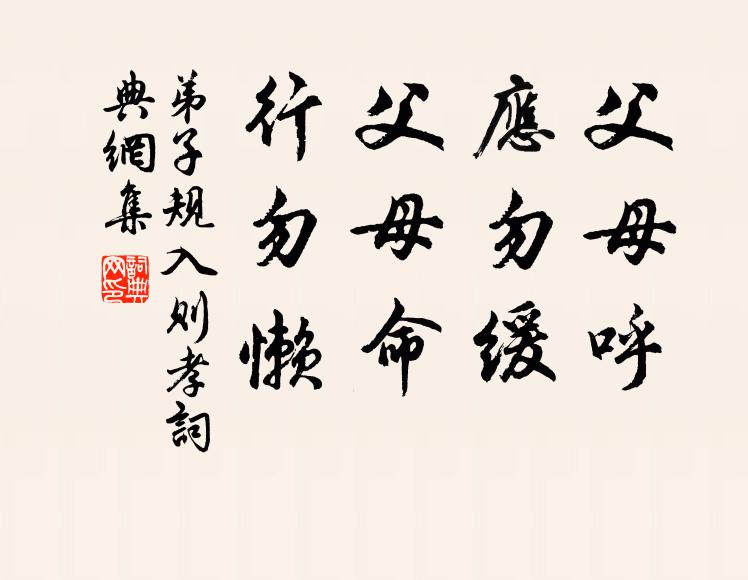 父母呼
應勿緩
父母命
行勿懶
弟子規入則孝詞
典網集
詞典網印